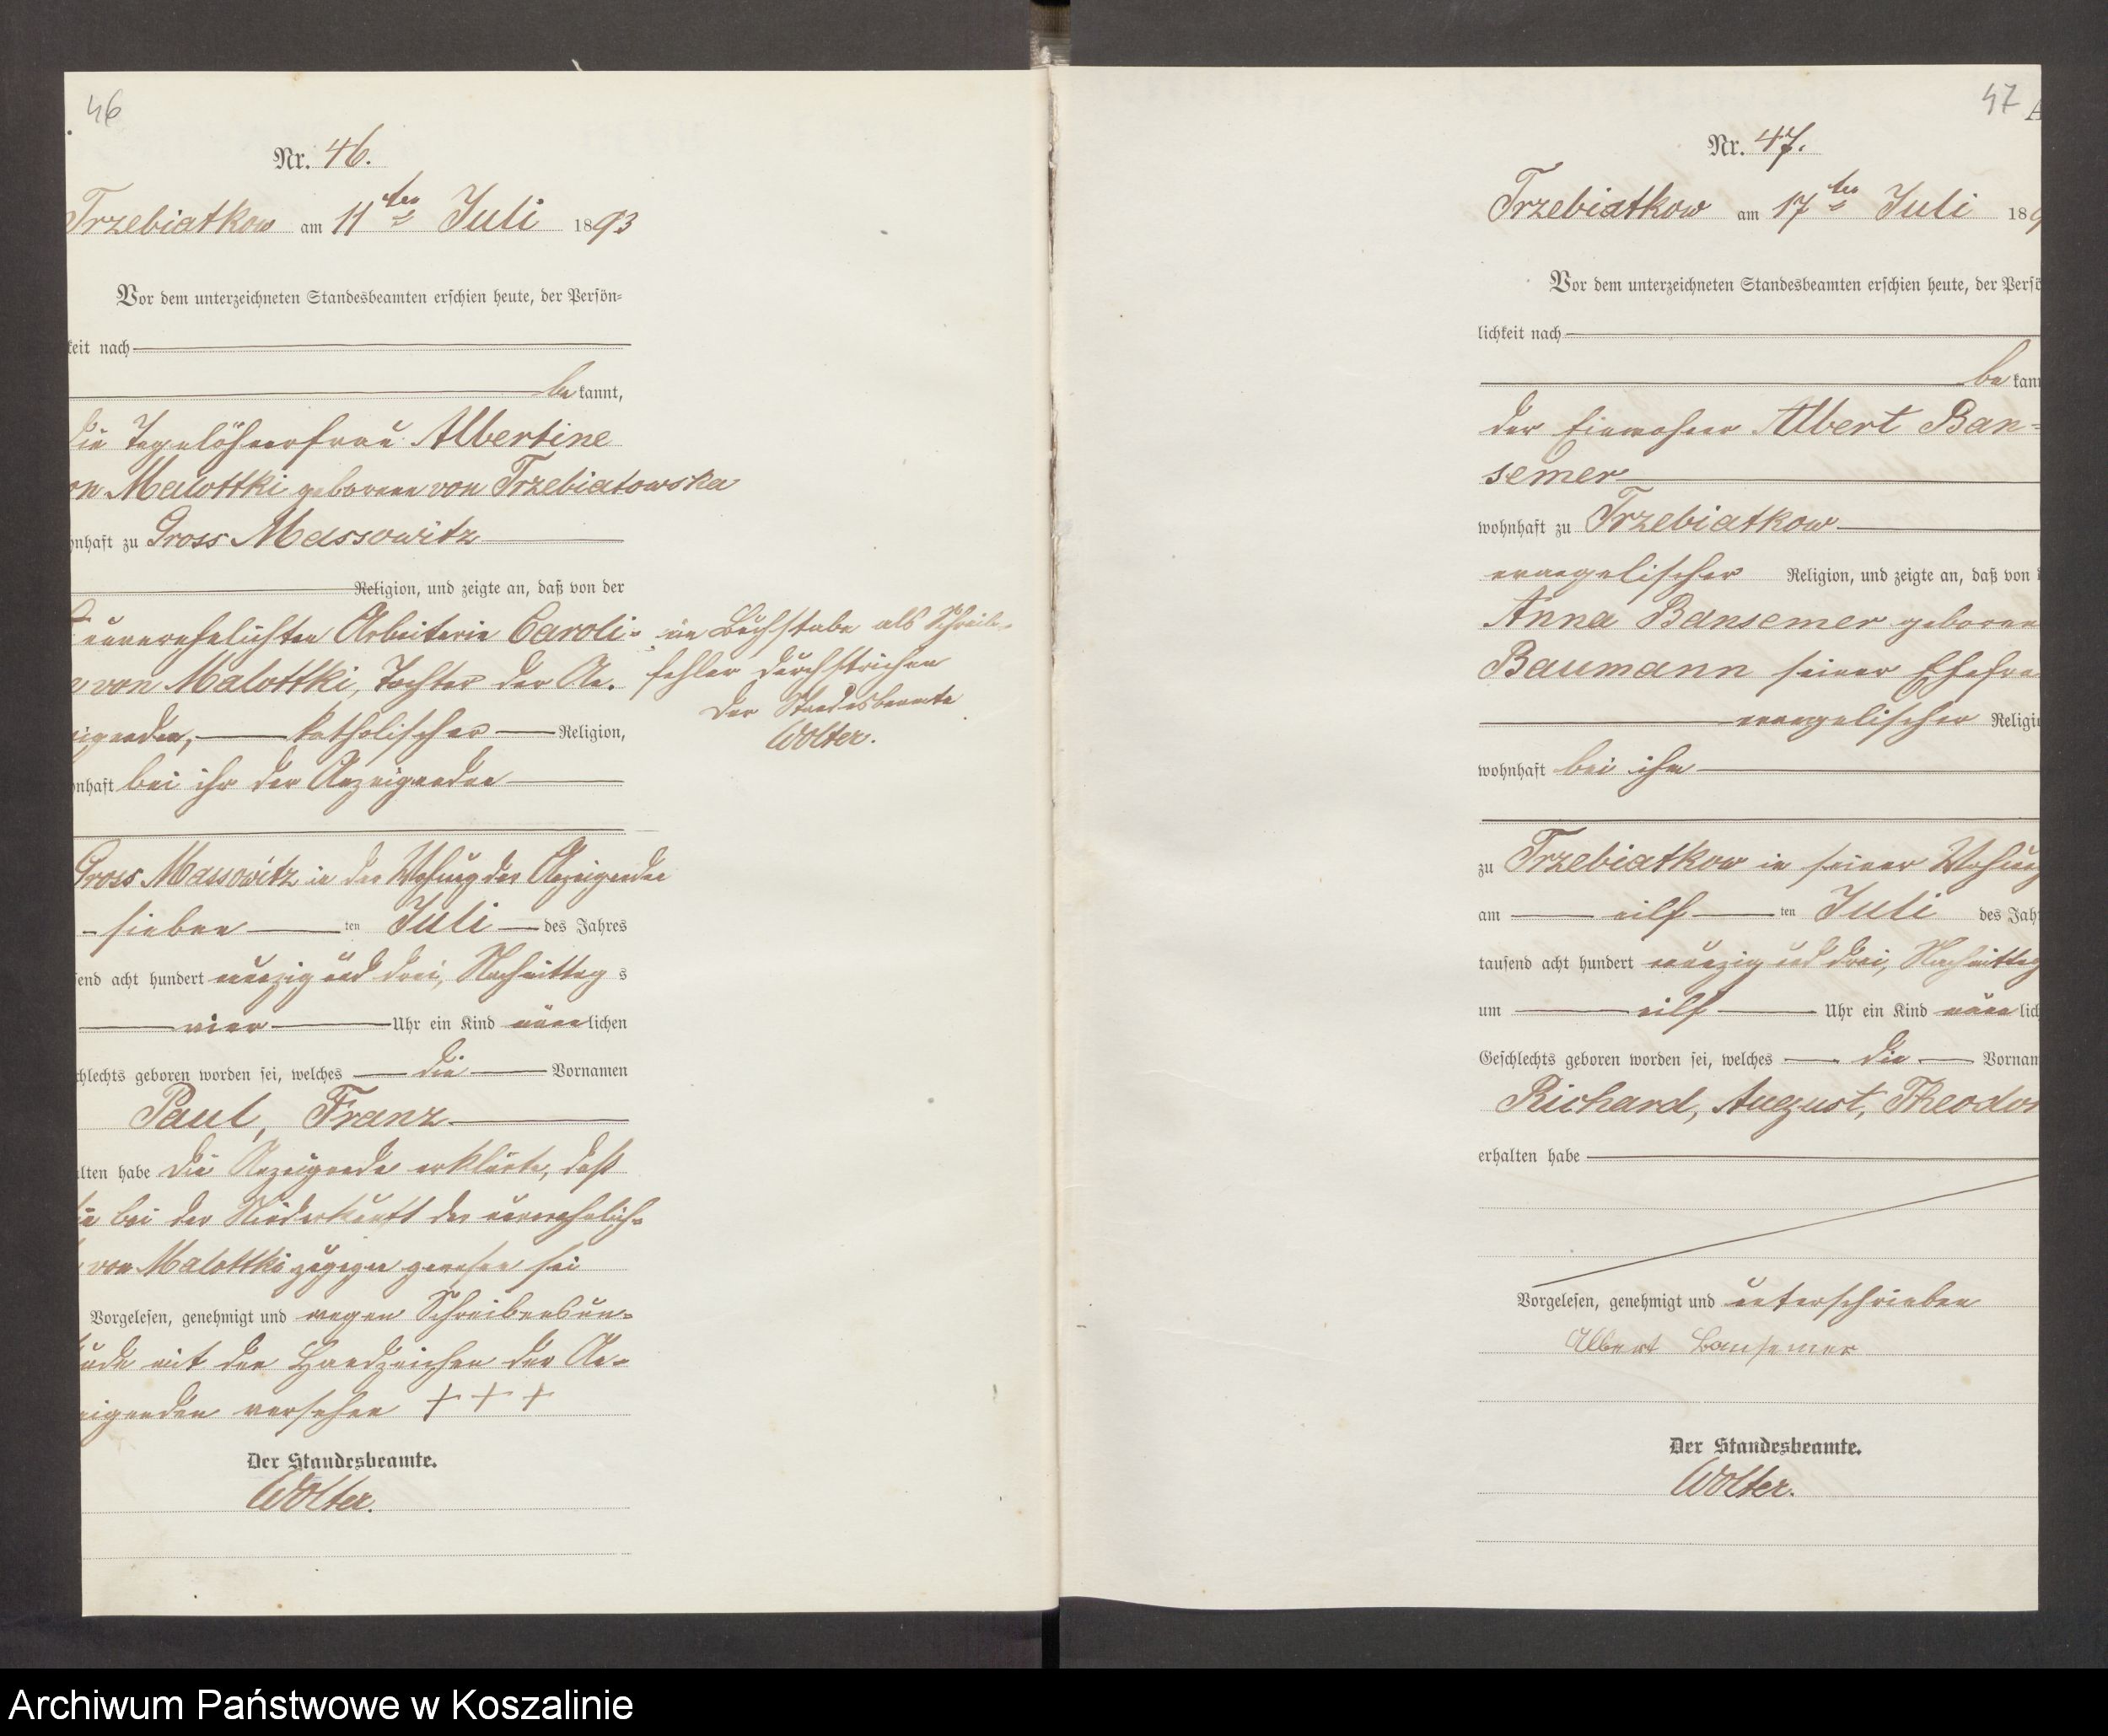 46
Nr. 46.
Trzebiatkow am 11ten Juli 1893
Vor dem unterzeichneten Standesbeamten erschien heute, der Persön=
keit nach
be kannt,
die Tagelöhnerfrau Albertine
on Malottki geborene von Trzebiatowska
nhaft zu Gross Massowitz
Religion, und zeigte an, daß von der
unverehelichten Arbeiterin Caroli=
von Malottki, Tochter der An=
zeigenden, katholischer Religion,
nhaft bei ihr der Anzeigenden
Gross Massowitz in der Wohnung der Anzeigenden
sieben ten Juli des Jahres
send acht hundert neunzig und drei, Nachmittag s
vier Uhr ein Kind männ lichen
chlechts geboren worden sei, welches die Vornamen
Paul, Franz
lten habe Die Anzeigende erklärte, daß
sie bei der Niederkunft der unverehelich=
von Malottki zugegen gewesen sei
Vorgelesen, genehmigt und wegen Schreibensun=
kunde mit den Handzeichen der An=
zeigenden versehen + + +
Der Standesbeamte.
Wolter.
ein Buchstabe als Schreib=
fehler durchstrichen
Der Standesbeamte
Wolter.
47
Nr. 47.
Trzebiatkow am 17ten Juli 189
Vor dem unterzeichneten Standesbeamten erschien heute, der Persö
lichkeit nach
be kann
der Einwohner Albert Ban=
semer
wohnhaft zu Trzebiatkow
evangelischer Religion, und zeigte an, daß von
Anna Bansemer geborene
Baumann seiner Ehefra
evangelischer Religi
wohnhaft bei ihm
zu Trzebiatkow in seiner Wohnung
am eilf ten Juli des Jah
tausend acht hundert neunzig und drei, Nachmittag
um eilf Uhr ein Kind männ lich
Geschlechts geboren worden sei, welches die Vornam
Richard, August, Theodor
erhalten habe
Vorgelesen, genehmigt und unterschrieben
Albert Bansemer
Der Standesbeamte.
Wolter.
Archiwum Państwowe w Koszalinie